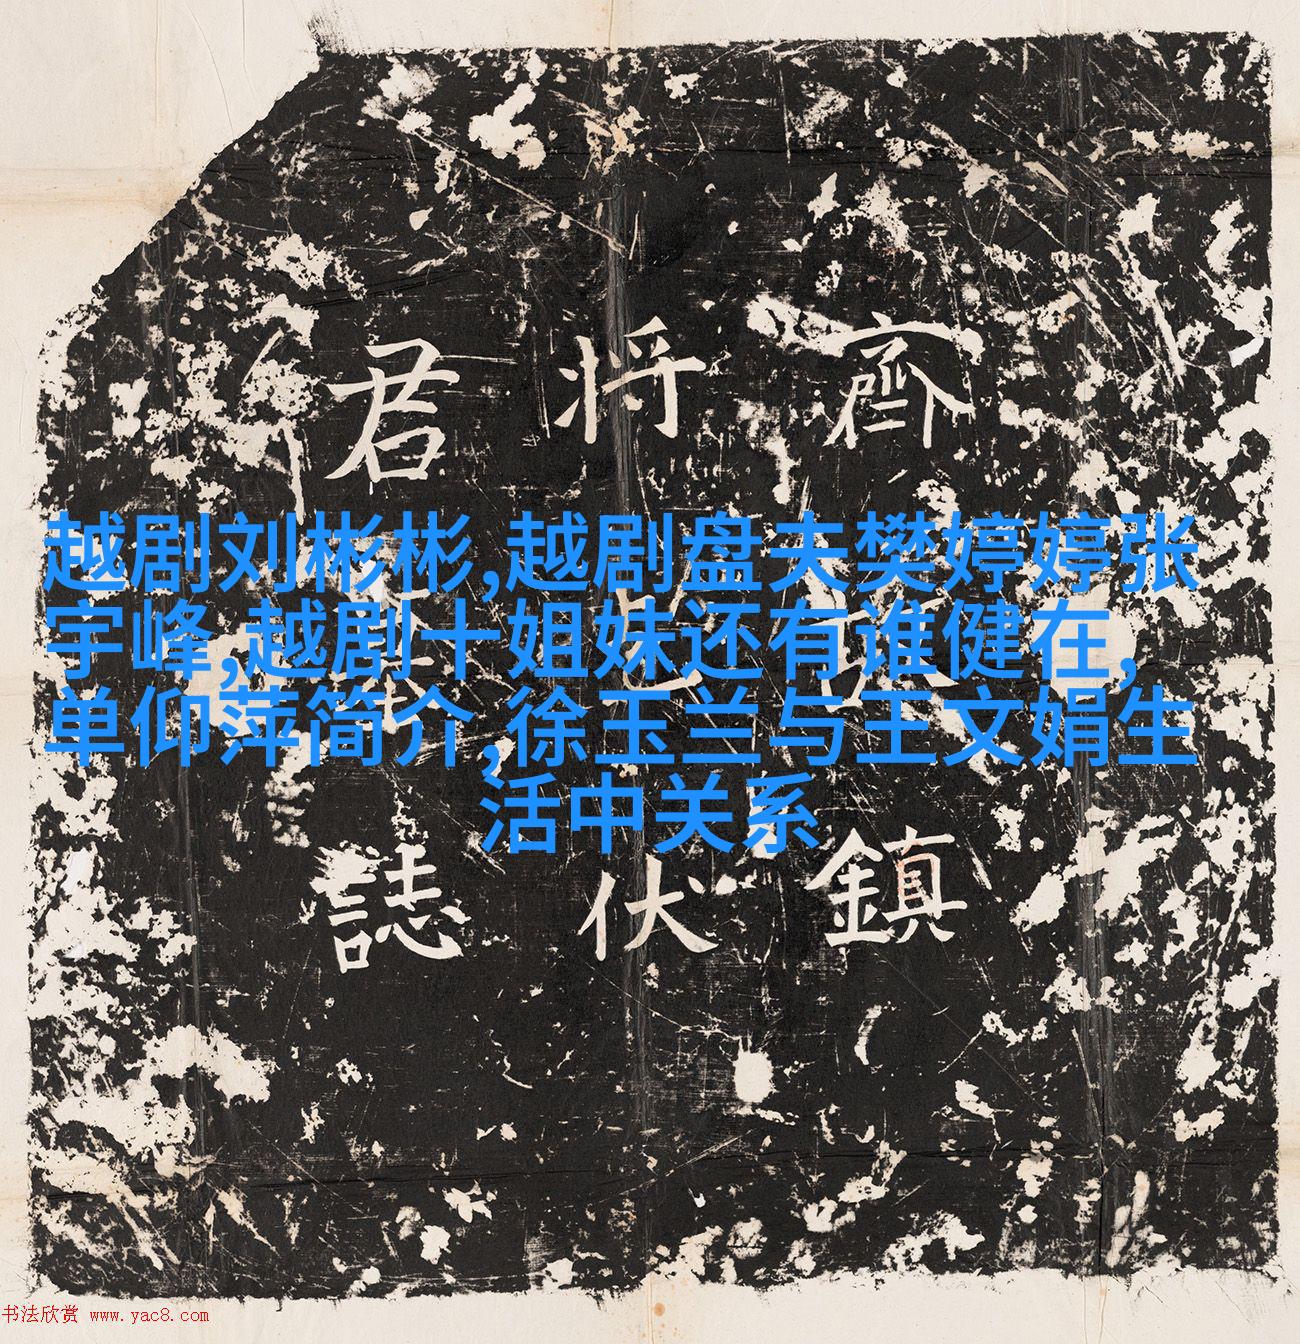 齊
鎮
将
伏
君
誌
越剧刘彬彬,越剧盘夫樊婷婷张
宇峰,越剧十姐妹还有谁健在,
单仰萍简介,徐玉兰与王文娟生
活中关系
书法欣赏 www.yac8.com